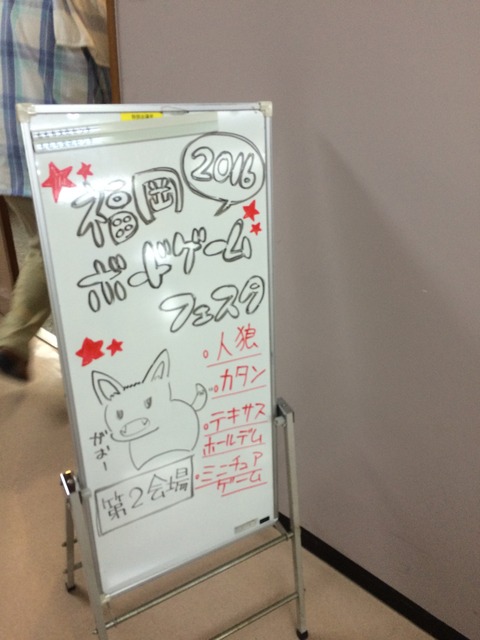 2016
福岡
ボードゲーム
フェスタ
人狼
カタン
テキサス
ホールデム
ミニチュア
ゲーム
がおー
第2会場